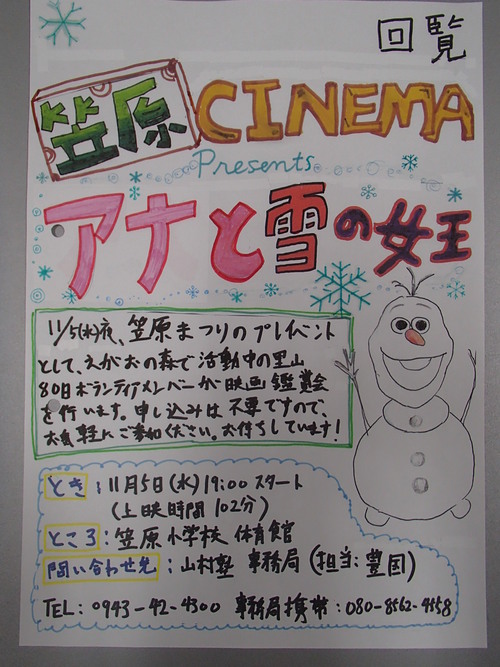 回覧
笠原 CINEMA
Presents
アナと雪の女王
11/5(水)夜、笠原まつりのプレイベント
として、えがおの森で活動中の里山
80日ボランティアメンバーが映画鑑賞会
を行います。申し込みは不要ですので、
お気軽にご参加ください。お待ちしています！
とき：11月5日(水)19:00スタート
(上映時間102分)
ところ：笠原小学校 体育館
問い合わせ先：山村塾 事務局 (担当：豊国)
TEL：0943-42-4300 事務局携帯：080-8562-4558